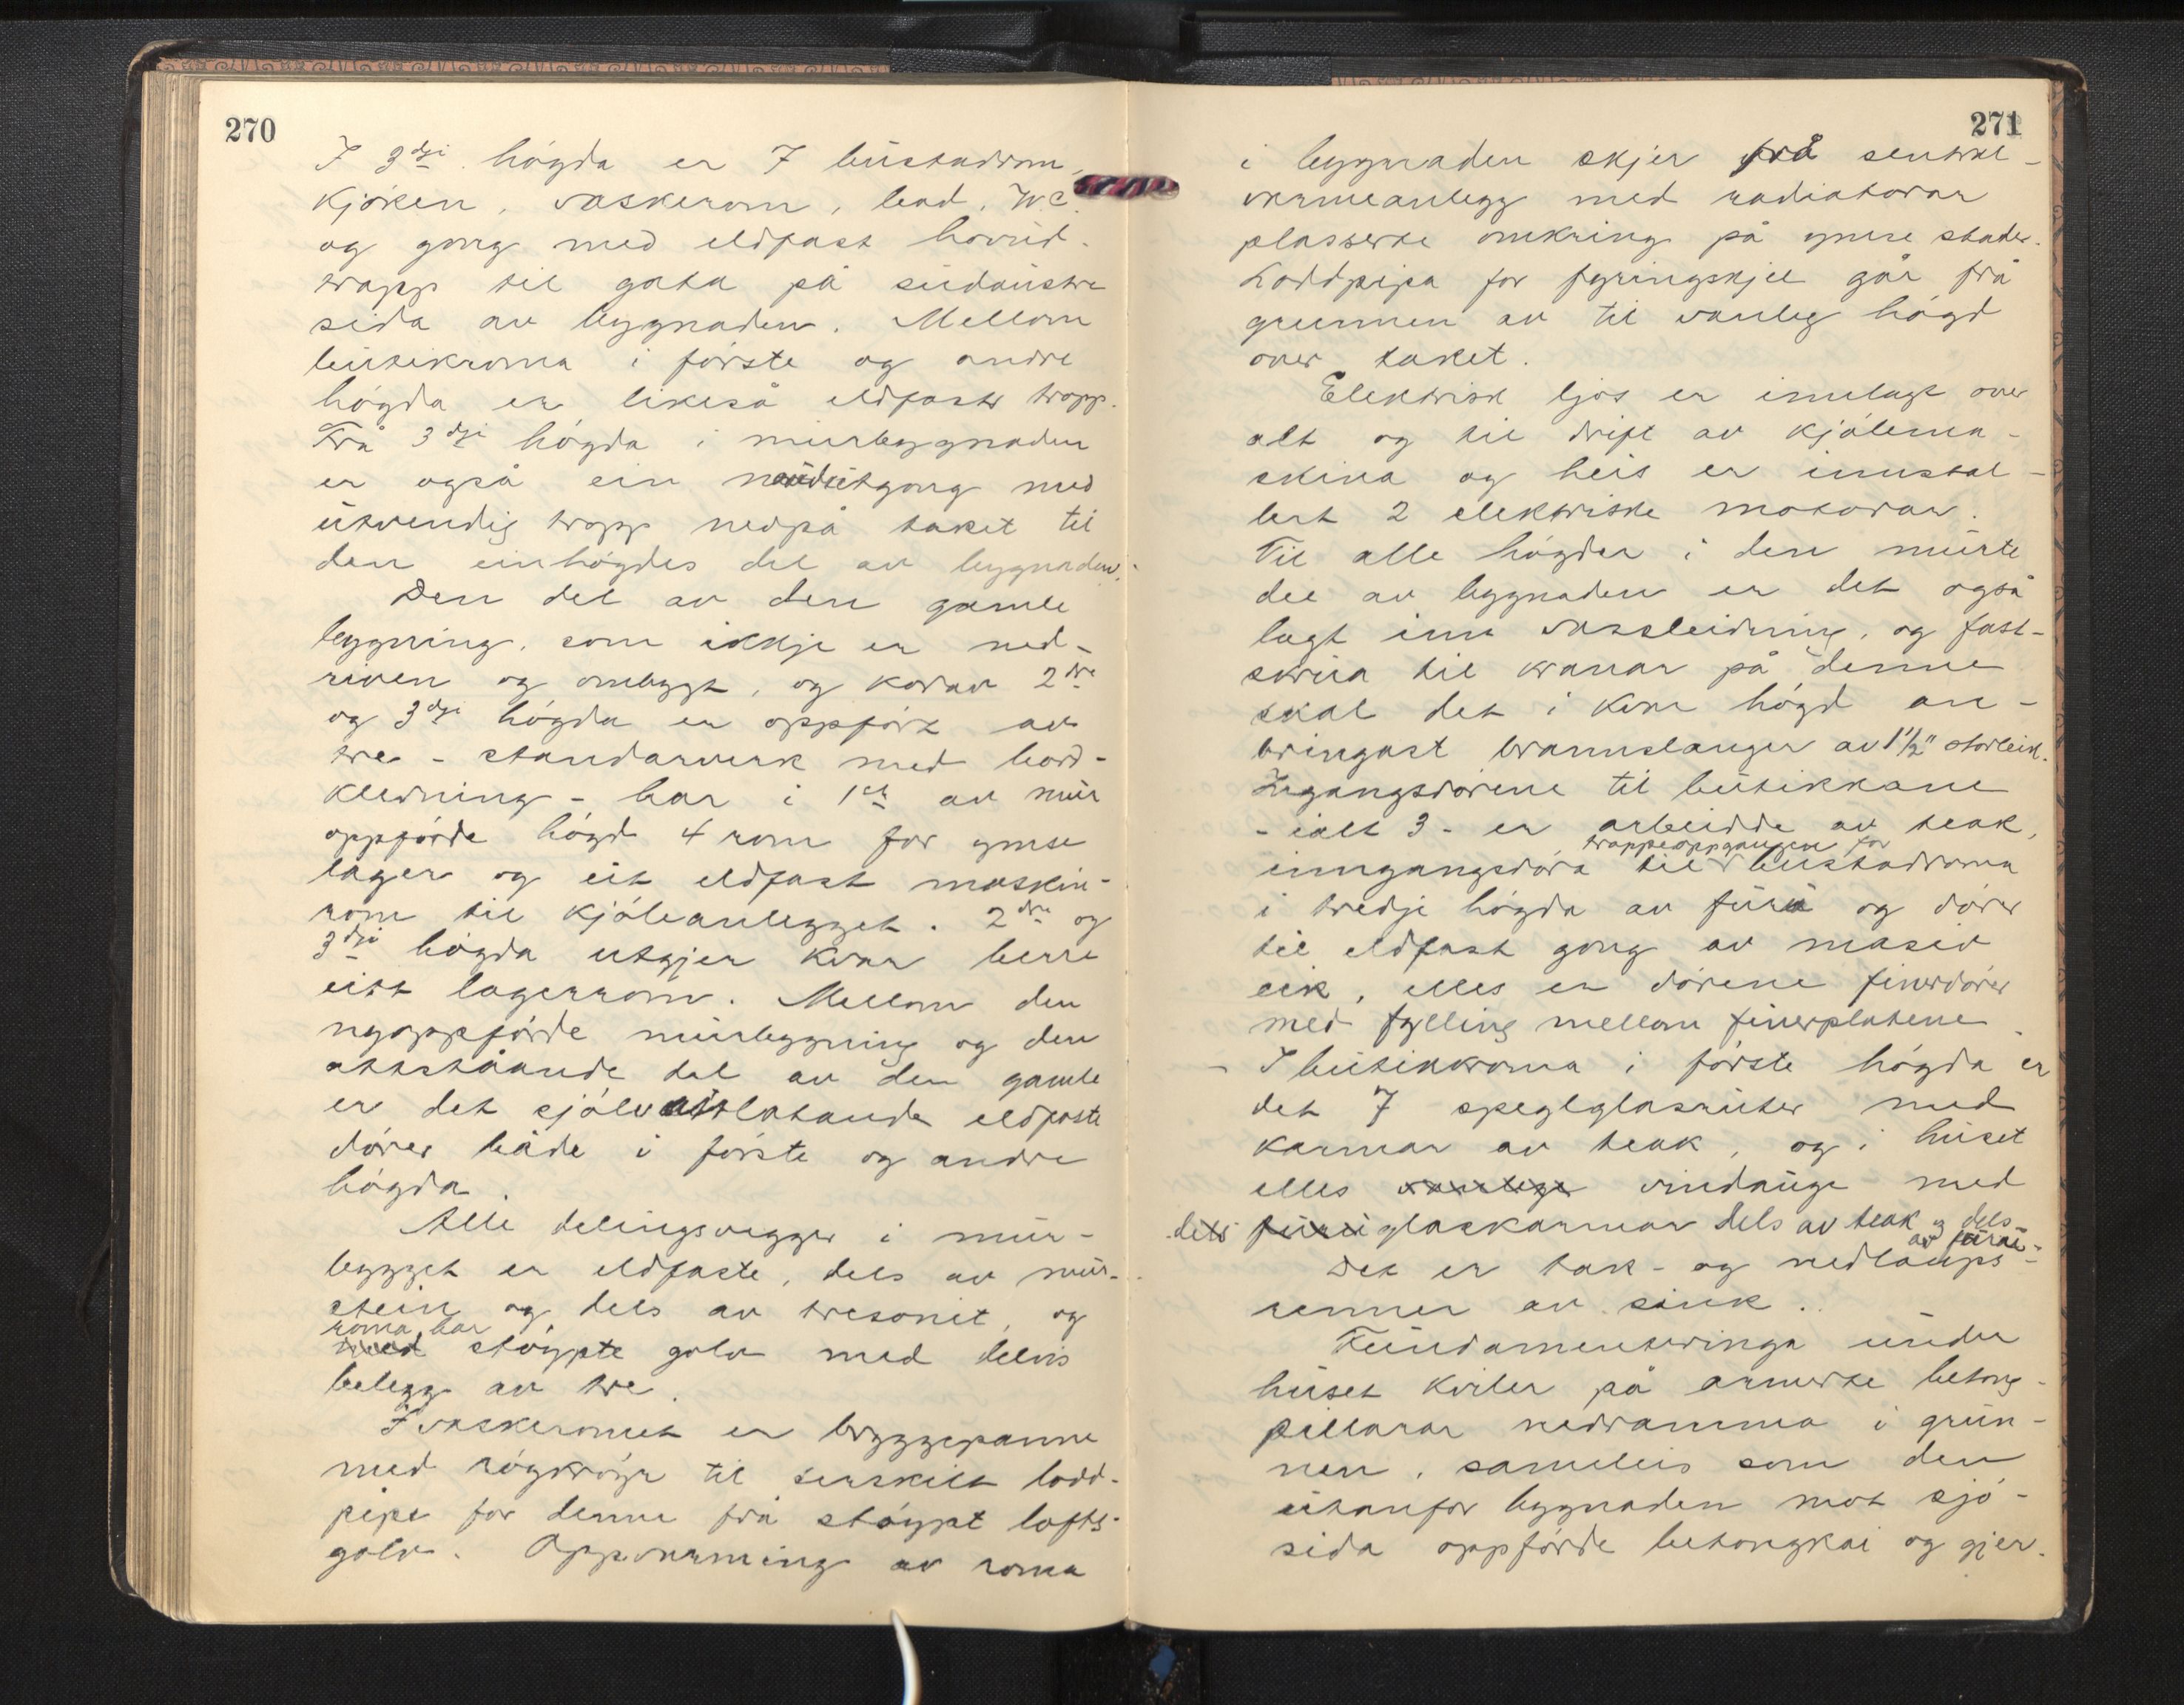 270
I 3dje högda er 7 bustadrom,
kjöken, vaskerom, bad, W.C.
og gong med eldfast hovud-
trapp til gata på südaustre
sida av bygnaden. Mellom
butikroma i förste og andre
högda er likeså eldfaste trapp.
Frå 3dje högda i murbygnaden
er også ein naudutgong med
utvendig trapp nedpå taket til
den einhögdes del av bygnaden.
Den del av den gamle
bygning, som ikkje er ned-
riven og ombygt, og korav 2dre
og 3dje högda er oppfört av
tre - standarverk med bord-
kledning - har i 1ste av mur
oppförde högd 4 rom for ymse
lager og eit eldfast maskin-
rom til kjöleanlegget. 2dre og
3dje högda utgjer kvar berre
eitt lagerrom. Mellom den
nyoppförde murbygning og den
attståande del av den gamle
er det sjölvattlatande eldfaste
dörer både i förste og andre
högda.
Alle delingsvegger i mur-
bygget er eldfaste, dels av mur-
stein og dels av tresonit, og
roma har
med stöypte golv med delvis
belegg av tre.
I vaskeromet er bryggepanne
med rögkröyr til serskilt lodd-
pipe for denne frå stöypt lofts-
golv. Oppvarming av roma
271
i bygnaden skjer frå sentral-
varmeanlegg med radiatorar
plasserte omkring på ymse stader.
Loddpipa for fyringskjel går frå
grunnen av til vanleg högd
over taket.
Elektrisk ljos er innlagt over
alt og til drift av kjölema-
skina og heis er innstal-
lert 2 elektriske motorar.
Til alle högder i den murte
del av bygnaden er det også
lagt inn vassleidning, og fast-
skrua til kranar på denne
skal det i kvar högd an-
bringast brannslanger av 1½" storleik.
Inngangsdörene til butikkane
- ialt 3 - er arbeidde av teak,
trappeoppgangen for
inngangsdöra til bustadroma
i tredje högda av furu og dörer
til eldfast gong av masiv
eik, elles er dörene finerdörer
med fylling mellom finerplatene.
- I butikkroma i förste högda er
det 7 speglglasruter med
karmar av teak, og i huset
elles vanlege vindauge med
dels furu glaskarmar dels av teak og dels
av furu.
Det er tak- og nedlaups-
renner av sink.
Fundamenteringa under
huset kviler på armerte betong-
pillarar nedramma i grun-
nen, sameleis som den
utanfor bygnaden mot sjö-
sida oppförde betongkai og gjer.